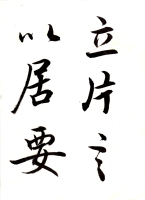 立片言
以居要